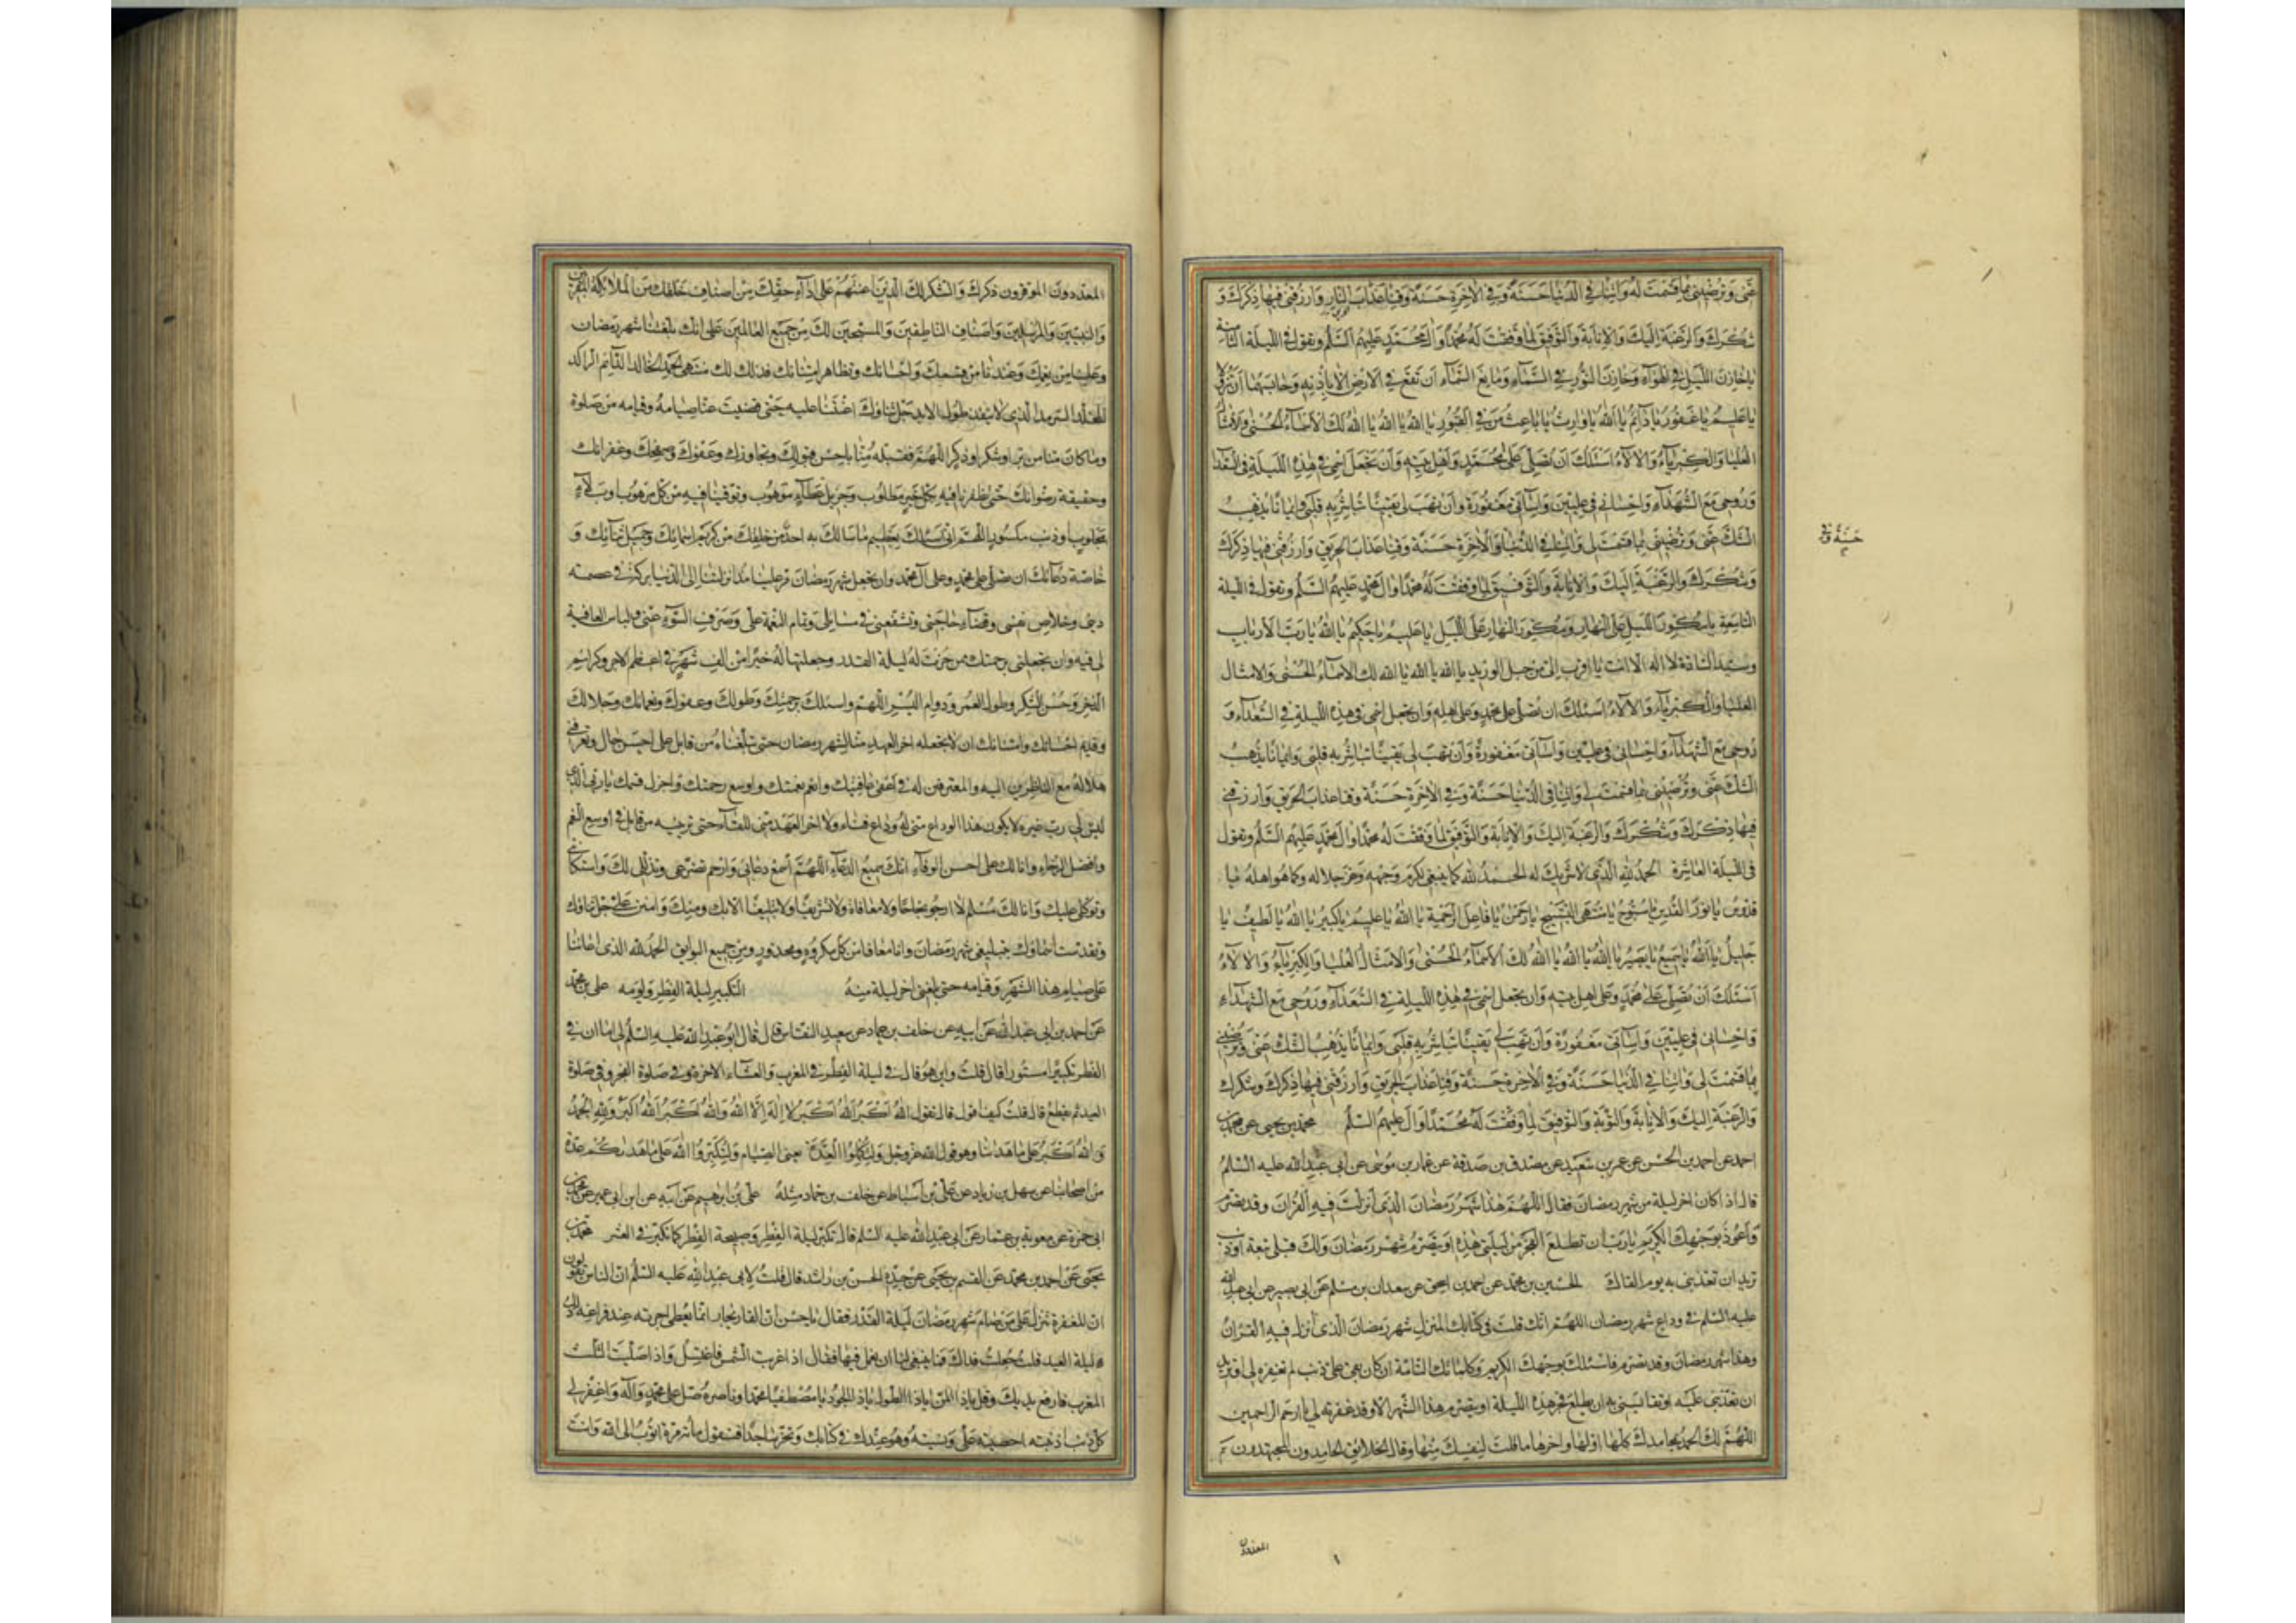 عَنّى وَتُرْضِيَنى بِمَا قَسَمْتَ لَهُ وَاتِنَا فِى الدّنْيَا حَسَنَةً وَفِى الْاخِرَةِ حَسَنَةً وَقِنَا عَذَابَ النَّارِ وَارْزُقْنى فيهَا ذِكْرَكَ وَ
شُكْرَكَ وَالرَّغْبَةَ اِلَيْكَ وَالْاِنَابَةَ وَالتَّوْفيقَ لِمَا وَفَّقْتَ لَهُ مُحَمَّدًا وَالَ مُحَمَّدٍ عَلَيْهِمُ السَّلَمُ وتقول فى اللّيلة الثامنة
يَا خَازِنَ اللَّيْلِ فِى الْهَوَآءِ وَخَازِنَ النُّورِ فِى السَّمَآءِ وَمَانِعَ السَّمَآءِ اَنْ تَقَعَ عَلَى الْاَرْضِ اِلَّا بِاِذْنِهِ وَحَابِسَهُمَا اَنْ تَزُولَا
يَا عَليمُ يَا غَفُورُ يَا دَآئِمُ يَا اَللهُ يَا وَارِثُ يَا بَاعِثَ مَنْ فِى الْقُبُورِ يَا اَللهُ يَا اَللهُ يَا اَللهُ لَكَ الْاَسْمَآءُ الْحُسْنى وَالْاَمْثَالُ
الْعُلْيَا وَالْكِبْرِيَآءُ وَالْالَآءُ اَسْئَلُكَ اَنْ تُصَلِّىَ عَلى مُحَمَّدٍ وَاَهْلِ بَيْتِهِ وَاَنْ تَجْعَلَ اسْمى فى هذِهِ اللَّيْلَةِ فِى السُّعَدَآءِ
وَرُوحى مَعَ الشُّهَدَآءِ وَاِحْسَانى فى عِلِّيّينَ وَاِسَآئَتى مَغْفُورَةً وَاَنْ تَهَبَ لى يَقينًا تُبَاشِرُ بِهِ قَلْبى وَايمَانًا يُذْهِبُ
الشَّكَّ عَنّى وَتُرْضِيَنى بِمَا قَسَمْتَ لى وَاتِنَا فِى الدُّنْيَا وَالْاخِرَةِ حَسَنَةً وَقِنَا عَذَابَ الْحَريقِ وَارْزُقْنى فيهَا ذِكْرَكَ
حَسَنَةً وَفِى
وَشُكْرَكَ وَالرَّغْبَةَ اِلَيْكَ وَالْاِنَابَةَ وَالتَّوْفيقَ لِمَا وَفَّقْتَ لَهُ مُحَمَّدًا وَالَ مُحَمَّدٍ عَلَيْهِمُ السَّلَمُ وتقول فى الليلة
التاسعة يَا مُكَوِّرَ اللَّيْلِ عَلَى النَّهَارِ وَمُكَوِّرَ النَّهَارِ عَلَى اللَّيْلِ يَا عَليمُ يَا حَكيمُ يَا اَللهُ يَا رَبَّ الْاَرْبَابِ
وسيّد السادة لا اله الّا انت يا اقرب الىّ من حبل الوريد يا الله يا الله يا الله لك الاسماء الحسنى والامثال
العليا والكبرياء والالاء اسئلك ان تصلّى على محمد وعلى اهله وان تجعل اسمى فى هذه الليلة فى السّعداء وَ
رُوحى مع الشّهداء واحسانى فى علّيين واسآئتى مغفورةً وان تهب لى يقينًا تباشر به قلبى وايمانًا يذهب
الشّك عنّى وتُرضينى بما قسمت لى واتنا فى الدّنيا حَسَنةً وفى الاخرة حَسَنةً وقنا عذاب الحريق وارزقنى
فيها ذكرك وشكرك والرغبة اليك والانابة والتّوفيق لما وفّقت له محمدًا وال محمّدٍ عليهم السّلم وتقول
فى الليلة العاشرة الحمد لله الّذى لا شريك له الحمد لله كما ينبغى لكرم وجهه وعزّ جلاله وكما هو اهله يا
قدّوس يا نور القدس يا سُبّوح يا منتهى التّسبيح يا رحمن يا فاعل الرّحمة يا الله يا عليم يا كبير يا الله يا لطيف يا
جليل يا الله يا سميع يا بصير يا الله يا الله يا الله لك الاسماء الحسنى والامثال العليا والكبرياء والالاء
اسئلك ان تصلّى على محمّد وعلى اهل بيته وان تجعل اسمى فى هذه الليلة فى السّعداء وروحى مع الشّهداء
واحسانى فى علّيين واسائتى مغفورةً وان تهب لى يقينًا تباشر به قلبى وايمانًا يذهب الشّك عنّى وترضينى
بما قسمت لى واتنا فى الدّنيا حَسَنةً وفى الاخرة حَسَنةً وقنا عذاب الحريق وارزقنى فيها ذكرك وشكرك
والرغبة اليك والانابة والتّوبة والتّوفيق لما وفّقت له محمّدًا وال عليهم السّلم محمد بن يحيى عن محمد بن
احمد عن احمد بن الحسن عن عمر بن سعيد عن مصدق بن صدقة عن عمار بن موسى عن ابى عبد الله عليه السّلم
قال اذا كان اخر ليلة من شهر رمضان فقال اللّهم هذا شهر رمضان الّذى انزلت فيه القران وقد تصرّم
واعوذ بوجهك الكريم يا ربّ ان تطلع الفجر من ليلتى هذه او يتصرّم شهر رمضان ولك قبلى تبعة او ذنب
تريد ان تعذّبنى به يوم القاك الحسين بن محمّد عن احمد بن اسحق عن سعدان بن مسلم عن ابى بصير عن ابى عبد الله
عليه السّلم فى وداع شهر رمضان اللهمّ انّك قلت فى كتابك المنزل شهر رمضان الّذى انزل فيه القران
وهذا شهر رمضان وقد تصرّم فاسئلك بوجهك الكريم وكلماتك التامّة ان كان بقى علىّ ذنب لم تغفره لى او تريد
ان تعذّبنى عليه او تقايسنى به ان يطلع فجر هذه الليلة او يتصرّم هذا الشهر الّا وقد غفرته لى يا ارحم الراحمين
اللهمّ لك الحمد بمحامدك كلّها اوّلها واخرها ما قلت لنفسك منها وقال الخلايق الحامدون المجتهدون
المعدودن
المعدودون الموقرون ذكرك والشكر لك الّذين اعنتهم على اداء حقّك من اصناف خلقك من الملائكة المقرّبين
والنبيّين والمرسلين واصناف الناطقين والمسبّحين لك من جميع العالمين على انّك بلّغتنا شهر رمضان
وعلينا من نعمك وعندنا من قسمك واحسانك وتظاهر امتنانك فذلك لك منتهى الحمد الخالد الدّآئم الراكد
المخلّد السّرمد الّذى لا ينفد طول الابد جلّ ثناؤك اعنتنا عليه حتى قضيت عنّا صيامه وقيامه من صلوة
وما كان منّا من برّ او شكر او ذكر اللهمّ فتقبّله منّا باحسن قبولك وتجاوزك وعفوك وصفحك وغفرانك
وحقيقة رضوانك حتى تظفرنا فيه بكلّ خير مطلوب وجزيل عطاء موهوب وتوقينا فيه من كلّ مرهوب او بلاء
مجلوب او ذنب مكسوب اللهمّ انّى اسئلك بعظيم ما سالك به احد من خلقك من كريم اسمائك وجميل ثنائك و
خاصّة دعائك ان تصلّى على محمّد وعلى آل محمّد وان تجعل شهر رمضان هذا اعظم شهر رمضان مرّ علينا منذ انزلتنا الى الدّنيا بركة فى عصمة
دينى وخلاص نفسى وقضاء حاجتى وتشفّعنى فى مسائلى وتمام النعمة علىّ وصرف السّوء عنّى ولباس العافية
لى فيه وان تجعلنى برحمتك ممن حزت له ليلة القدر وجعلتها له خيرًا من الف شهر فى اعظم الاجر وكرائم
الذّخر وحسن الشّكر وطول العمر ودوام اليسر اللّهمّ واسئلك برحمتك وطولك وعفوك ونعمائك وجلالك
وقديم احسانك وامتنانك ان لا تجعله اخر العهد منّا لشهر رمضان حتى تبلّغناه من قابل على احسن حال وتعرّفنى
هلاله مع الناظرين اليه والمعترفين له فى اعفى عافيتك وانعم نعمتك واوسع رحمتك واجزل قسمك يا ربّى الّذى
ليس لى ربّ غيره لا يكون هذا الوداع منّى له وداع فناء ولا اخر العهد منّى للقآء حتى ترينيه من قابل فى اوسع النّعم
وافضل الرّجاء وانا لك على احسن الوفاء انّك سميع الدّعاء اللّهمّ اسمع دعائى وارحم تضرّعى وتذلّلى لك واستكانتى
وتوكّلى عليك وانا لك مسلم لا ارجو نجاحًا ولا معافاة ولا تشريفًا ولا تبليغًا الّا بك ومنك وامنن علىّ جلّ ثناؤك
وتقدّست اسماؤك بتبليغى شهر رمضان وانا معافا من كلّ مكروه ومحذور ومن جميع البوايق الحمد لله الذى اعاننا
على صيام هذا الشهر وقيامه حتى بلغنى اخر ليلة منه التكبير ليلة الفطر ويومه على بن محمد
عن احمد بن ابى عبد الله عن ابيه عن خلف بن حماد عن سعيد النقاش قال قال ابو عبد الله عليه السلم لى اما ان فى
الفطر تكبيرًا مستورًا قال قلت واين هو قال فى ليلة الفطر فى المغرب والعشاء الاخرة وفى صلوة الفجر وفى صلوة
العيد ثم يقطع قال قلت كيف اقول قال تقول الله اكبر الله اكبر لا اله الّا الله والله اكبر الله اكبر ولله الحمد
والله اكبر على ما هدانا وهو قول الله عزّ وجلّ ولتكملوا العدّة يعنى الصيام ولتكبّروا الله على ما هداكم عدة
من اصحابنا عن سهل بن زياد عن على بن اسباط عن خلف بن حماد مثله على بن ابرهيم عن ابيه عن ابن ابى عمير عن محمد بن
ابى حمزة عن معوية بن عمار عن ابى عبد الله عليه السلم قال تكبّر ليلة الفطر وصبيحة الفطر كما تكبّر فى العشر محمد بن
يحيى عن احمد بن محمد عن القسم بن يحيى عن جدّه الحسن بن راشد قال قلت لابى عبد الله عليه السلم انّ الناس يقولون
انّ المغفرة تنزل على من صام شهر رمضان ليلة القدر فقال يا حسن انّ القاريجار انّما يعطى اجرته عند فراغه ذلك
ليلة العيد قلت جعلت فداك فما ينبغى لنا ان نعمل فيها فقال اذا غربت الشمس فاغتسل واذا صلّيت الثلث
المغرب فارفع يديك وقل يا ذا المنّ يا ذا الطول يا ذا الجود يا مصطفيًا محمدًا وناصره صلّ على محمّد وآله واغفر لى
كلّ ذنب اذنبته احصيته علىّ ونسيته وهو عندك فى كتابك وتخرّ ساجدًا فتقول مائة مرّة اتوب الى الله وانت